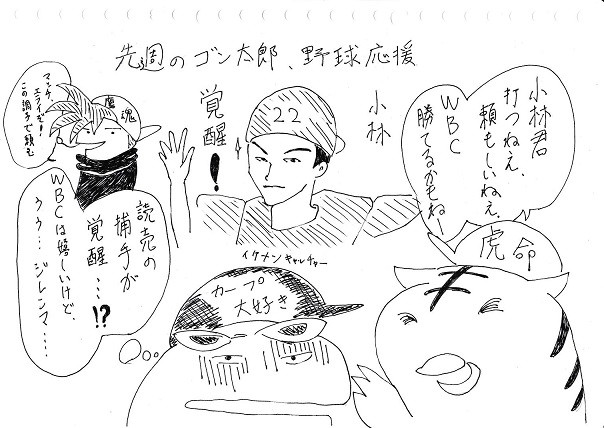 先週のゴン太郎、野球応援
小林君
打つねえ、
頼もしいねえ、
WBC
勝てるかもねー
小林
22
覚醒!
イケメンキャッチャー
鷹
魂
マッチ、
エライぞ!
この調子で頼む
読売の
捕手が
覚醒…!?
WBCは嬉しいけど、
うぅ…ジレンマ…
カープ
大好き
虎命